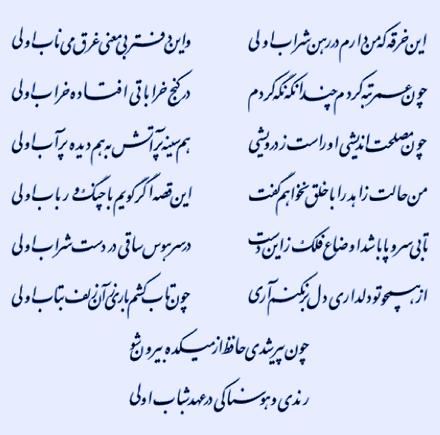 این خرقه که من دارم در رهن شراب اولی واین دفتر بی معنی غرق می ناب اولی
چون عمر تبه کردم چندانکه نگه کردم در کنج خراباتی افتاده خراب اولی
چون مصلحت اندیشی دور است ز درویشی هم سینه پر آتش به هم دیده پر آب اولی
من حالت زاهد را با خلق نخواهم گفت این قصه اگر گویم با چنگ و رباب اولی
تا بی سر و پا باشد اوضاع فلک زاین دست در سر هوس ساقی در دست شراب اولی
از همچو تو دلداری دل برنکنم آری چون تاب کشم باری زآن زلف بتاب اولی
چون پیر شدی حافظ از میکده بیرون شو
رندی و هوسناکی در عهد شباب اولی